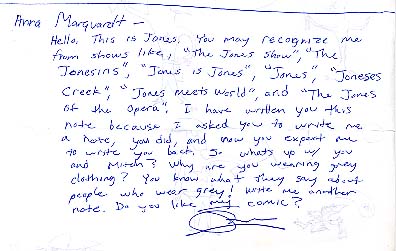 Anna Marquardt —
Hello. This is Jones. You may recognize me
from shows like, "The Jones Show", "The
Jonesins", "Jones is Jones", "Jones", "Joneses
Creek", "Jones meets World", and "The Jones
of the Opera". I have written you this
note because I asked you to write me
a note, you did, and now you expect me
to write you back. So whats up w/ you
and Mitch? Why are you wearing grey
clothing? You know what they say about
people who wear grey! Write me another
note. Do you like my comic?